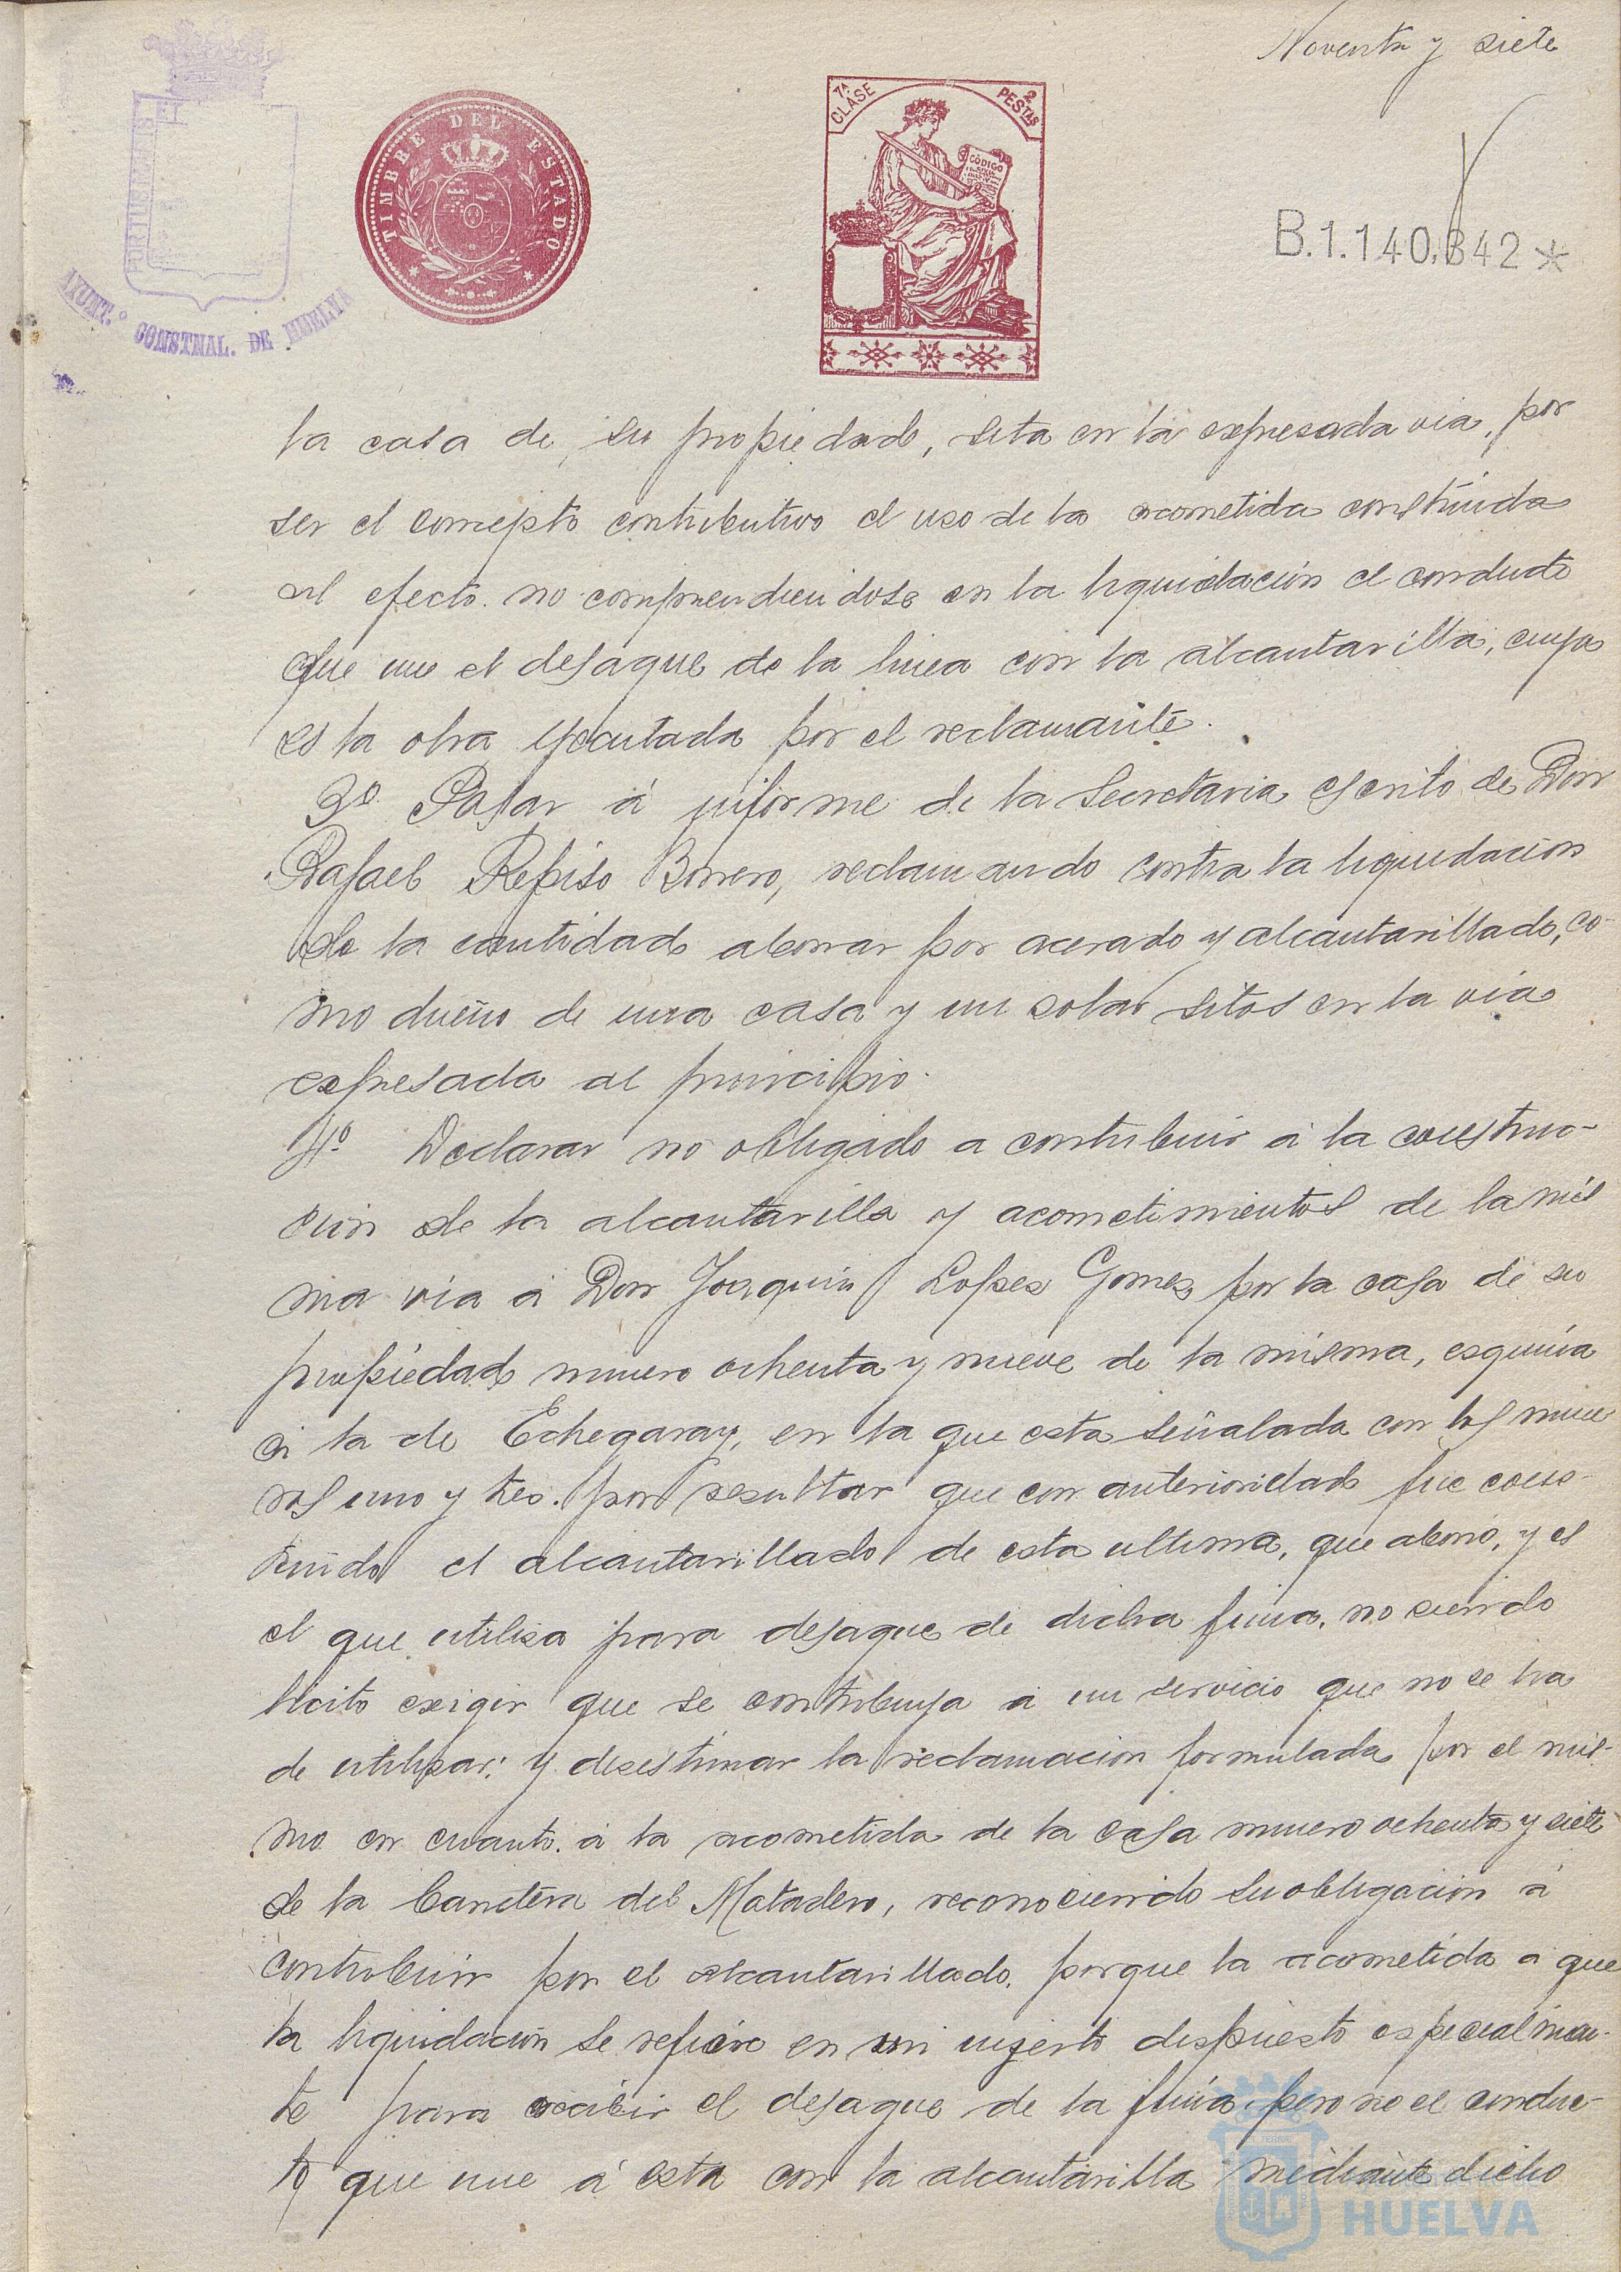 Noventa y siete
TIMBRE DEL ESTADO
7ª CLASE
2 PESTAS
CÓDIGO
B.1.140,342*
AYUNT.º CONSTNAL. DE HUELVA
la casa de su propiedad, sita en la expresada via, por
ser el concepto contributivo el uso de la acometida construida
al efecto. no comprendiendose en la liquidación el conducto
que une el desague de la linea con la alcantarilla, cuya
es la obra ejecutada por el reclamante.
3º Pasar á informe de la Secretaria escrito de Don
Rafael Repiso Borrero, reclamando contra la liquidacion
de la cantidad abonar por acerado y alcantarillado, co-
mo dueño de una casa y un solar sitos en la via
expresada al principio.
4º Declarar no obligado a contribuir á la construc-
cion de la alcantarilla y acometimientos de la mis
ma via á Don Joaquin Lopez Gomez por la casa de su
propiedad numero ochenta y nueve de la misma, esquina
á la de Echegaray, en la que esta señalada con los nume
ros uno y tres. por resultar que con anterioridad fue cons-
truido el alcantarillado de esta ultima, que abonó, y es
el que utiliza para desague de dicha finca, no siendo
licito exigir que se contribuya á un servicio que no se ha
de utilizar; y desestimar la reclamacion formulada por el mis-
mo en cuanto á la acometida de la casa numero ochenta y siete
de la Carretera del Matadero, reconociendo su obligacion á
contribuir por el alcantarillado, porque la acometida a que
la liquidación se refiere en un injerto dispuesto especialmen-
te para recibir el desague de la finca, pero no el conduc-
to que une á esta con la alcantarilla mediante dicho
HUELVA